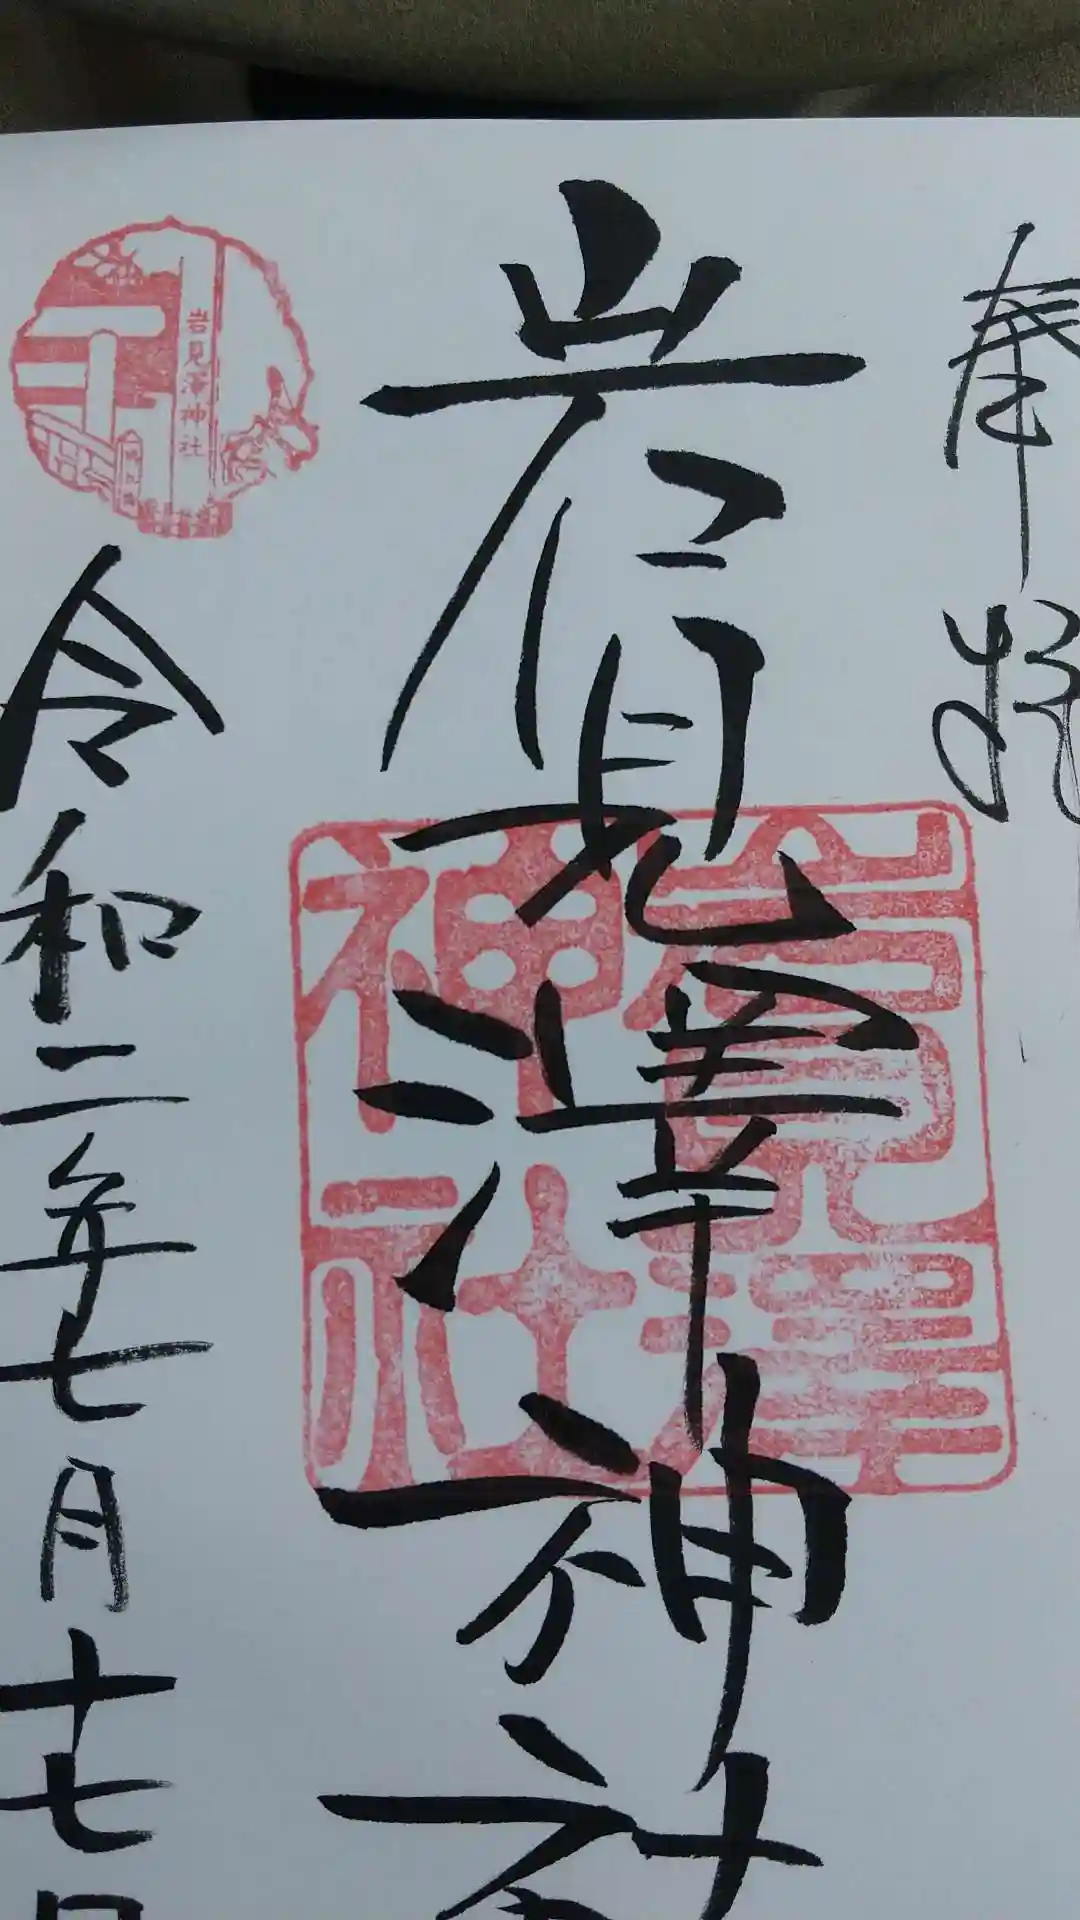 奉拝
岩見澤神社
岩見澤神社
岩見澤神社
令和二年七月十七日